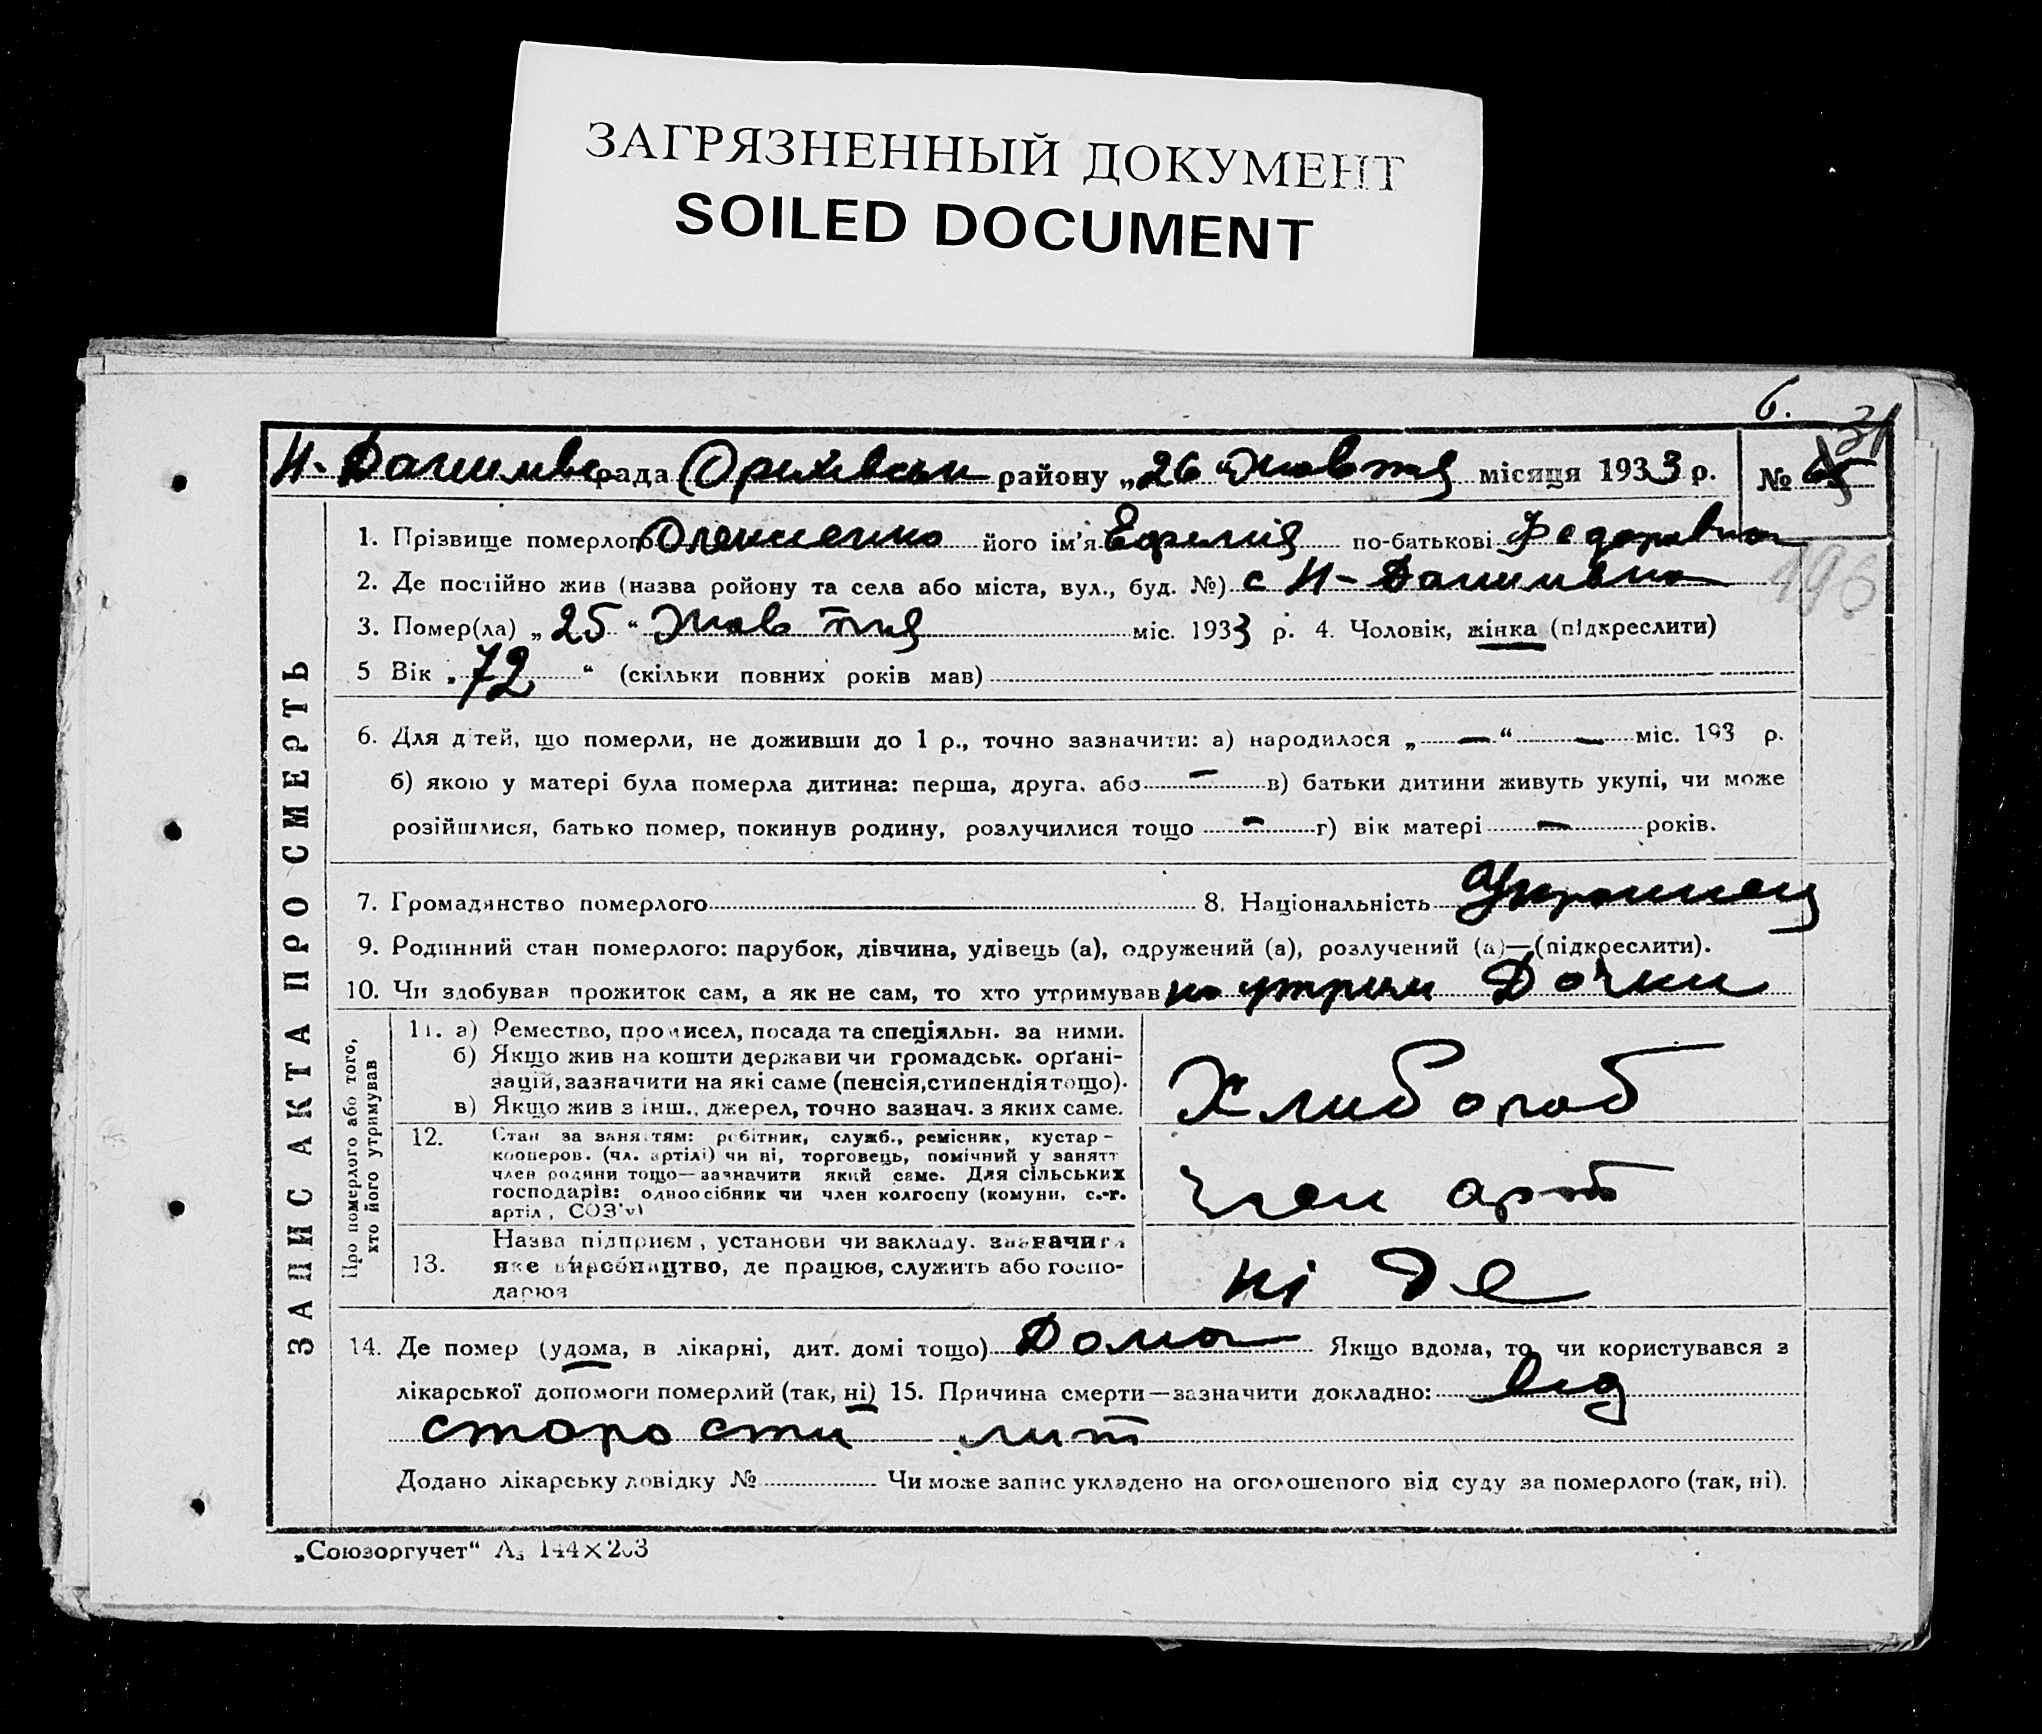 ЗАГРЯЗНЕННЫЙ ДОКУМЕНТ
SOILED DOCUMENT
6.
31
Н-Данилівс рада Оріхівськи району „26“ жовтня місяця 1933 р. № 65
196
ЗАПИС АКТА ПРО СМЕРТЬ
1. Прізвище померлого Олексеенко його ім'я Ефимия по-батькові Федоровна
2. Де постійно жив (назва ройону та села або міста, вул., буд. №) с Н-Данилівка
3. Помер(ла) „25“ Жовтня міс. 1933 р. 4. Чоловік, жінка (підкреслити)
5 Вік „72“ (скільки повних років мав)
6. Для дітей, що померли, не доживши до 1 р., точно зазначити: а) народилося „—“ — міс. 193 р.
б) якою у матері була померла дитина: перша, друга, або — в) батьки дитини живуть укупі, чи може
розійшлися, батько помер, покинув родину, розлучилися тощо — г) вік матері — років.
7. Громадянство померлого 8. Національність Украинец
9. Родинний стан померлого: парубок, дівчина, удівець (а), одружений (а), розлучений (а)—(підкреслити).
10. Чи здобував прожиток сам, а як не сам, то хто утримував на утрим Дочки
Про померлого або того,
хто його утримував
11. а) Ремество, промисел, посада та спеціяльн. за ними.
б) Якщо жив на кошти держави чи громадськ. орґані-
зацій, зазначити на які саме (пенсія, стипендія тощо).
в) Якщо жив з інш., джерел, точно зазнач. з яких саме.
Хлибораб
12. Стан за заняттям: робітник, служб., ремісник, кустар-
кооперов. (чл. артілі) чи ні, торговець, помічний у занятт
член родини тощо—зазначити який саме. Для сільських
господарів: одноосібник чи член колгоспу (комуни, с.-г.
артіл, СОЗ'у)
член арт
Назва підприєм, установи чи закладу. зазначити
13. яке виробництво, де працює, служить або госпо-
дарює
ні де
14. Де помер (удома, в лікарні, дит. домі тощо) Дома Якщо вдома, то чи користувався з
лікарської допомоги померлий (так, ні) 15. Причина смерти—зазначити докладно: від
старости лит
Додано лікарську довідку № Чи може запис укладено на оголошеного від суду за померлого (так, ні).
„Союзоргучет“ А₅ 144×203